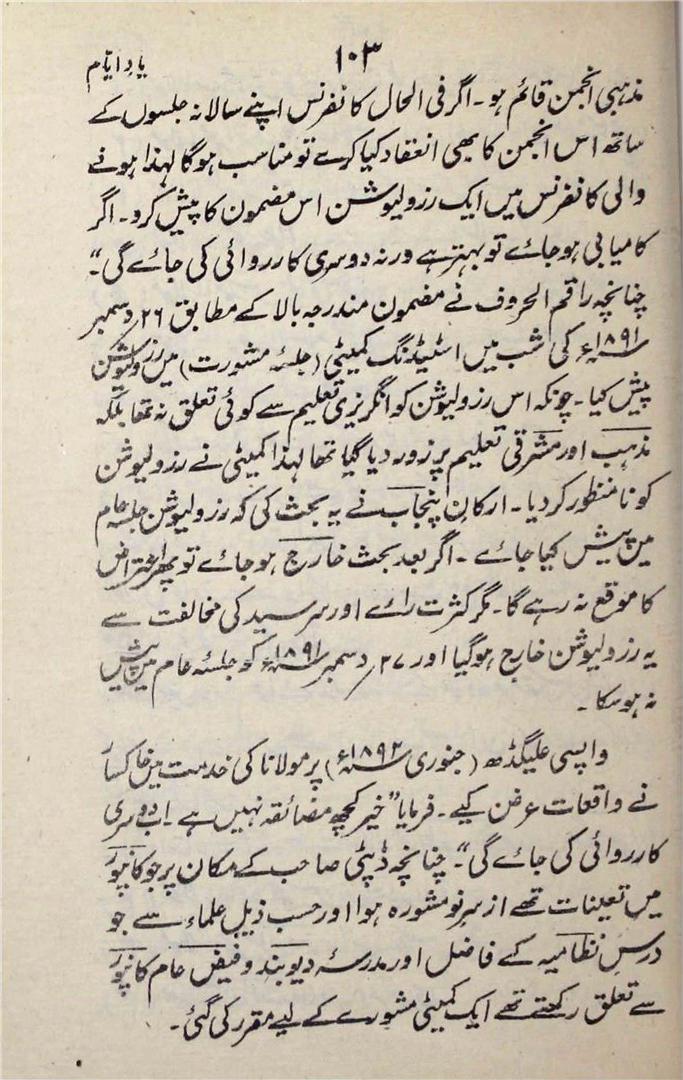 ۱۰۳
یادِ ایّام
مذہبی انجمن قائم ہو۔ اگر فی الحال کانفرنس اپنے سالانہ جلسوں کے
ساتھ اس انجمن کا بھی انعقاد کیا کرے تو مناسب ہوگا لہذا ہونے
والی کانفرنس میں ایک رزولیوشن اس مضمون کا پیش کرو۔ اگر
کامیابی ہو جائے تو بہتر ہے ورنہ دوسری کارروائی کی جائے گی"۔
چنانچہ راقم الحروف نے مضمون مندرجہ بالا کے مطابق ۲۶؍ دسمبر
۱۸۹۱ء کی شب میں اسٹینڈنگ کمیٹی (جلسۂ مشورت) میں رزولیوشن
پیش کیا۔ چونکہ اس رزولیوشن کو انگریزی تعلیم سے کوئی تعلق نہ تھا بلکہ
مذہب اور مشرقی تعلیم پر زور دیا گیا تھا لہذا کمیٹی نے رزولیوشن
کو نامنظور کر دیا۔ ارکانِ پنجاب نے یہ بحث کی کہ رزولیوشن جلسۂ عام
میں پیش کیا جائے۔ اگر بعد بحث خارج ہو جائے تو پھر اعتراض
کا موقع نہ رہے گا۔ مگر کثرت رائے اور سر سید کی مخالفت سے
یہ رزولیوشن خارج ہوگیا اور ۲۷؍ دسمبر ۱۸۹۱ء کو جلسۂ عام میں پیش
نہ ہو سکا۔
واپسی علیگڈھ (جنوری ۱۸۹۲ء) پر مولانا کی خدمت میں خاکسار
نے واقعات عرض کیے۔ فرمایا "خیر کچھ مضائقہ نہیں ہے۔ اب دوسری
کارروائی کی جائے گی"۔ چنانچہ ڈپٹی صاحب کے مکان پر جو کانپور
میں تعینات تھے از سرِ نو مشورہ ہوا اور حسب ذیل علماء سے جو
درسِ نظامیہ کے فاضل اور مدرسۂ دیوبند و فیض عام کانپور
سے تعلق رکھتے تھے ایک کمیٹی مشورے کے لیے مقرر کی گئی۔